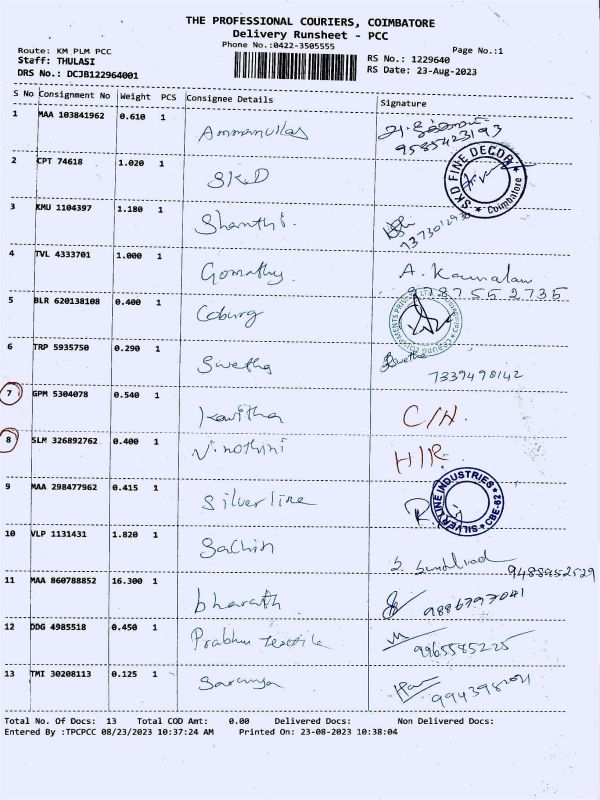 THE PROFESSIONAL COURIERS, COIMBATORE
Delivery Runsheet - PCC
Phone No.:0422-3505555
Page No.:1
Route: KM PLM PCC
Staff: THULASI
DRS No.: DCJB122964001
RS No.: 1229640
RS Date: 23-Aug-2023
S No Consignment No Weight PCS Consignee Details Signature
1 MAA 103841962 0.610 1 Ammanvilas
9585423193
2 CPT 74618 1.020 1 SKD
SKD FINE DECOR Coimbatore
3 KMU 1104397 1.180 1 Shanthi.
4 TVL 4333701 1.000 1 Gomathy. A. Kamalam
9787552735
5 BLR 620138108 0.400 1 Coburg
6 TRP 5935750 0.290 1 Swetha Swetha
7339498142
7 GPM 5304078 0.540 1 Kavitha C/H.
8 SLM 326892762 0.400 1 Vinothini H/R.
9 MAA 298477962 0.415 1 Silverline
SILVERLINE INDUSTRIES CBE-62
10 VLP 1131431 1.820 1 Sachin
9488952529
11 MAA 860788852 16.300 1 bharath 9886797041
12 DDG 4985518 0.450 1 Prabhu textile 9965585225
13 TMI 30208113 0.125 1 Saranya
Total No. Of Docs: 13 Total COD Amt: 0.00 Delivered Docs: Non Delivered Docs:
Entered By :TPCPCC 08/23/2023 10:37:24 AM Printed On: 23-08-2023 10:38:04